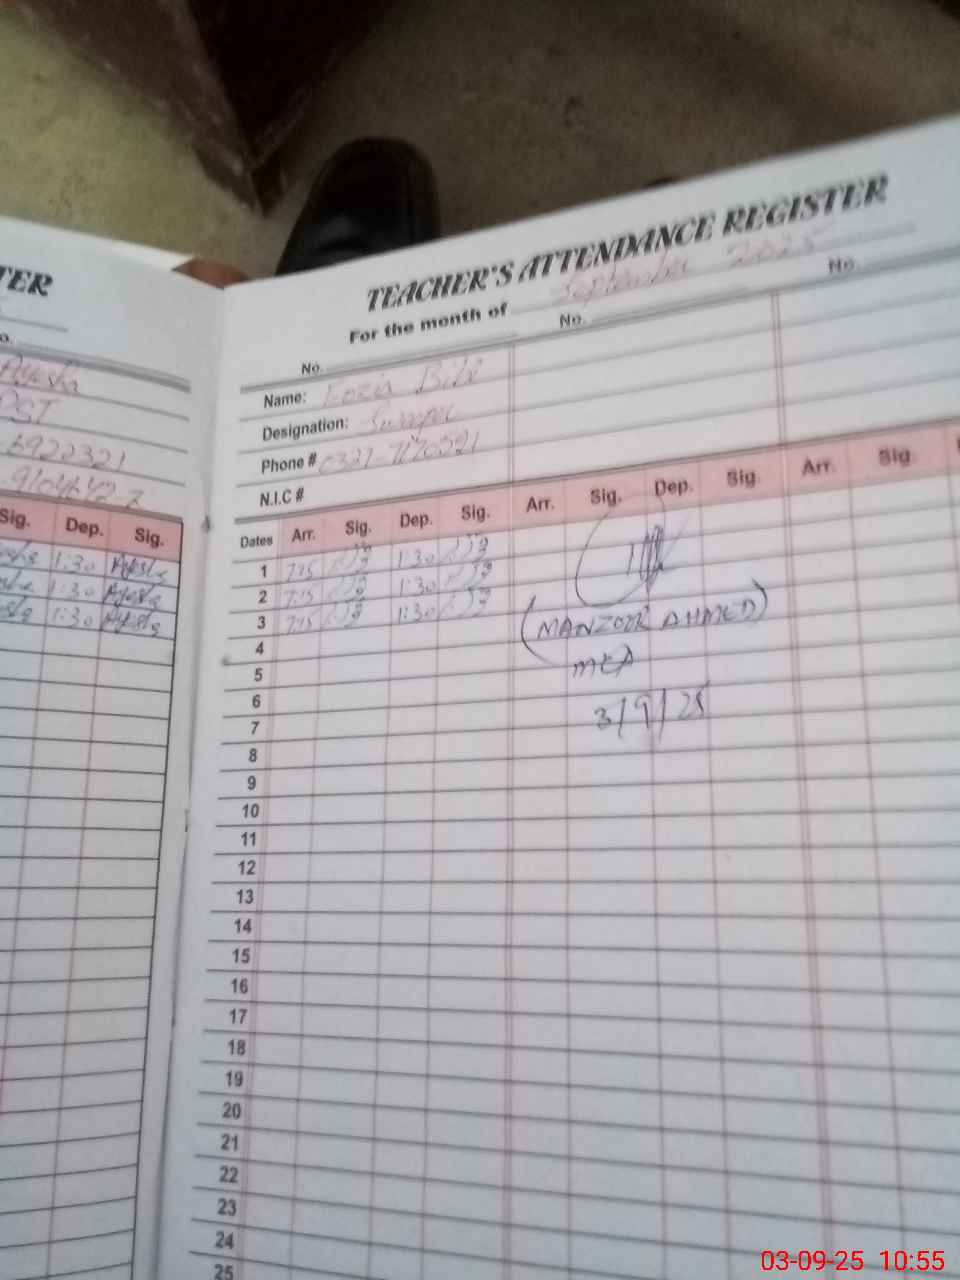 TER
o.
Ayesha
PST
6922321
9104642-2
Sig. Dep. Sig.
1:30 Ayesha
1:30 Ayesha
1:30 Ayesha
TEACHER'S ATTENDANCE REGISTER
For the month of September 2025
No. No. No.
Name: Fozia Bibi
Designation: Sweeper
Phone # 0327-7170591
N.I.C #
Dates Arr. Sig. Dep. Sig. Arr. Sig. Dep. Sig. Arr. Sig.
1 7:15 1:30
2 7:15 1:30
3 7:15 1:30
4
(MANZOOR AHMED)
5
MEA
6
3/9/25
7
8
9
10
11
12
13
14
15
16
17
18
19
20
21
22
23
24
25
03-09-25 10:55